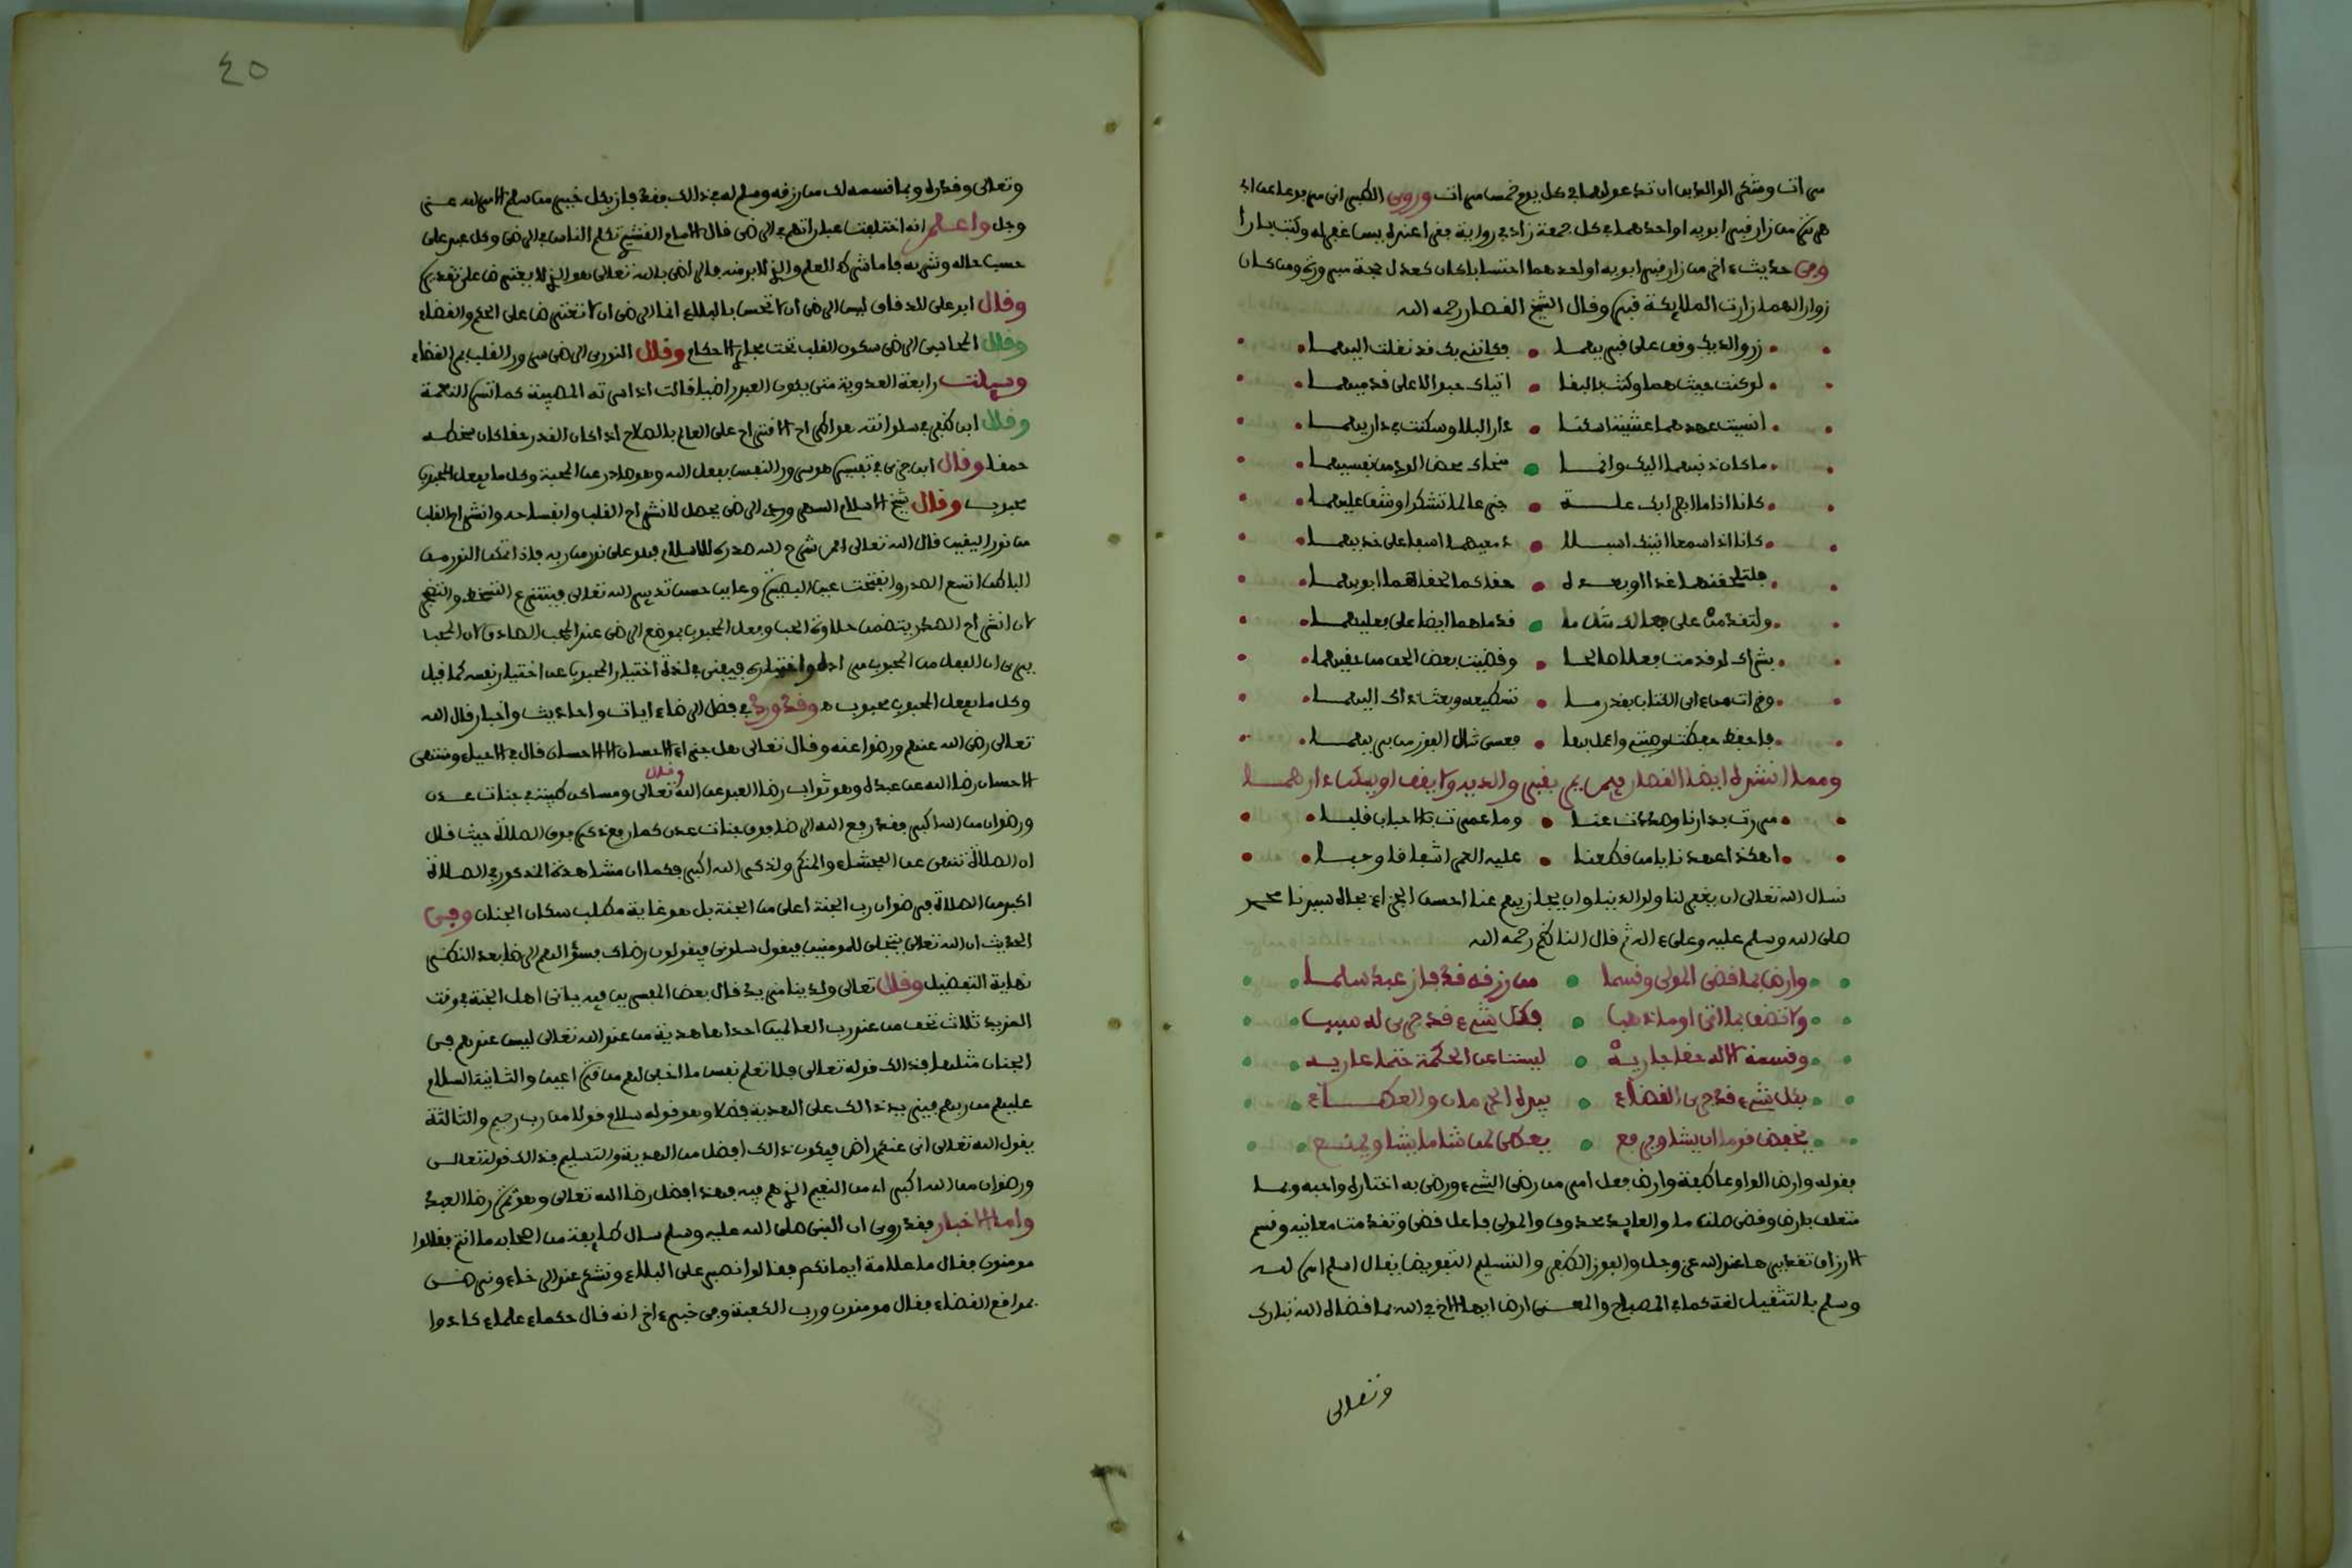 مرات وشكر الوالدين ان تدعو لهما في كل يوم خمس مرات وروى الطبراني مرفوعا عن ابي
هريرة من زار قبر ابويه او احدهما في كل جمعة زاد في رواية فقرا عنده يس غفر له وكتب بارا
وفي حديث ءاخر من زار قبر ابويه او احدهما احتسابا كان كعدل حجة مبرورة ومن كان
زوارا لهما زارت الملايكة قبره وقال الشيخ القصار رحمه الله
زر والديك وقف على قبريهما • فكانني بك قد نقلت اليهما
لو كنت حيث هما وكنت بالبقا • اتياك حبوا لا على قدميهما
انسيت عهدهما عشية اسكنا • دار البلا وسكنت في داريهما
ما كان ذنبهما اليك وانما • منحاك محض الود من نفسيهما
كانا اذا ما ابصرا بك علة • جزعا لما تشكوا وشق عليهما
كانا اذا سمعا انينك اسبلا • دمعيهما اسفا على خديهما
فلتلحقنهما غدا او بعده • حقا كما لحقا هما ابويهما
ولتقدمن على فعالك مثل ما • قدما هما ايضا على فعليهما
بشراك لو قدمت فعلا صالحا • وقضيت بعض الحق من حقيهما
وقرات من ءاي الكتاب بقدر ما • تسطيعه وبعثت ذاك اليهما
فاحفظ حفظت وصيتي واعمل بها • فعسى تنال الفوز من بريهما
ومما انشده ايضا القصار فيمن يمر بقبر والديه ولا يقف او يسكن دارهما
مررت بدارنا وصددت عنا • وما عمرت بالاحباب قلبا
اهكذا عهدنا يا من قطعنا • عليه العمر اشفاقا وحبا
نسال الله تعالى ان يغفر لنا ولوالدينا وان يجازيهم عنا احسن الجزاء بجاه سيدنا محمد
صلى الله وسلم عليه وعلى ءاله ثم قال الناظم رحمه الله
وارض بما قضى المولى وقسما • من رزقه قد فاز عبد سلما
ولا تضق بما اتى او ما ذهبا • فكل شيء قد جرى له سببا
وقسمة الاله حقا جارية • ليست عن الحكمة حتما عارية
بكل شيء قد جرى القضاء • بيده الحرمان والعطاء
يخفض قوما ان يشا ويرفع • يعطي لمن شا ما يشا ويمنع
فقوله وارض الواو عاطفة وارض فعل امر من رضي الشيء ورضي به اختاره واحبه وبما
متعلق بارض وقضى صلة ما والعايد محذوف والمولى فاعل قضى وتقدمت معانيه وقسم
الارزاق تقديرها عند الله عز وجل والفوز الظفر والتسليم التفويض يقال اسلم امره لله
وسلم بالتثقيل لغة كما في المصباح والمعنى ارض ايها الاخ في الله بما قضاه الله تبارك
وتعالى
٤٥
وتعالى وقدره وبما قسمه لك من رزقه وسلم له في ذالك فقد فاز بكل خير من سلم الامر لله عز
وجل واعلم انه اختلفت عباراتهم في الرضى قال الامام القشيري تكلم الناس في الرضى وكل عبر على
حسب حاله وشربه فاما شرط العلم والذي لا بد منه فالراضى بالله تعالى هو الذي لا يعترض على تقديره
وقال ابو علي الدقاق ليس الرضى ان لا تحس بالبلاء انما الرضى ان لا تعترض على الحكم والقضاء
وقال المحاسبي الرضى سكون القلب تحت مجاري الاحكام وقال النوري الرضى سرور القلب بمر القضاء
وسيلت رابعة العدوية متى يكون العبد راضيا قالت اذا سرته المصيبة كما تسره النعمة
وقال ابن ظفر في سلوانته هو اطراح الاقتراح على العالم بالصلاح اذا كان القدر حقا كان سخطه
حمقا وقال ابن جزي في تفسيره هو سرور النفس بفعل الله وهو صادر عن المحبة وكل ما يفعل المحبوب
محبوب وقال شيخ الاسلام السهروردي الرضى يحصل لانشراح القلب وانفساحه وانشراح القلب
من نور اليقين قال الله تعالى افمن شرح الله صدره للاسلام فهو على نور من ربه فاذا تمكن النور من
الباطن اتسع الصدر وانفتحت عين البصيرة وعاين حسن تدبير الله تعالى فينتزع التسخط والتضجر
لان انشراح الصدر يتضمن حلاوة الحب وفعل المحبوب بموقع الرضى عند المحب الصادق لان المحب
يرى ان الفعل من المحبوب مراده واختياره فيفنى في لذة اختيار المحبوب عن اختيار نفسه كما قيل
وكل ما يفعل المحبوب محبوب وقد ورد في فضل الرضاء ايات واحاديث واخبار قال الله
تعالى رضي الله عنهم ورضوا عنه وقال تعالى هل جزاء الاحسان الا الاحسان قال في الاحياء ومنتهى
الاحسان رضا الله عن عبده وهو ثواب رضا العبد عن الله وقال تعالى ومساكن طيبة في جنات عدن
ورضوان من الله اكبر فقد رفع الله الرضا فوق جنات عدن كما رفع ذكره فوق الصلاة حيث قال
ان الصلاة تنهى عن الفحشاء والمنكر ولذكر الله اكبر فكما ان مشاهدة المذكور في الصلاة
اكبر من الصلاة فرضوان رب الجنة اعلى من الجنة بل هو غاية مطلب سكان الجنان وفي
الحديث ان الله تعالى يتجلى للمومنين فيقول سلوني فيقولون رضاك فسؤالهم الرضا بعد النظر
نهاية التفضيل وقال تعالى ولدينا مزيد قال بعض المفسرين فيه ياتي اهل الجنة في وقت
المزيد ثلاث تحف من عند رب العالمين احداها هدية من عند الله تعالى ليس عندهم في
الجنان مثلها فذالك قوله تعالى فلا تعلم نفس ما اخفي لهم من قرة اعين والثانية السلام
عليهم من ربهم فيزيد ذالك على الهدية فضلا وهو قوله سلام قولا من رب رحيم والثالثة
يقول الله تعالى اني عنكم راض فيكون ذالك افضل من الهدية والتسليم فذالك قوله تعالى
ورضوان من الله اكبر اي من النعيم الذي هم فيه فهذا فضل رضا الله تعالى وهو ثمرة رضا العبد
واما الاخبار فقد روي ان النبي صلى الله عليه وسلم سال طايفة من اصحابه ما انتم فقالوا
مومنون فقال ما علامة ايمانكم فقالوا نصبر على البلاء ونشكر عند الرخاء ونرضى
بمواقع القضاء فقال مومنون ورب الكعبة وفي خبر ءاخر انه قال حكماء علماء كادوا